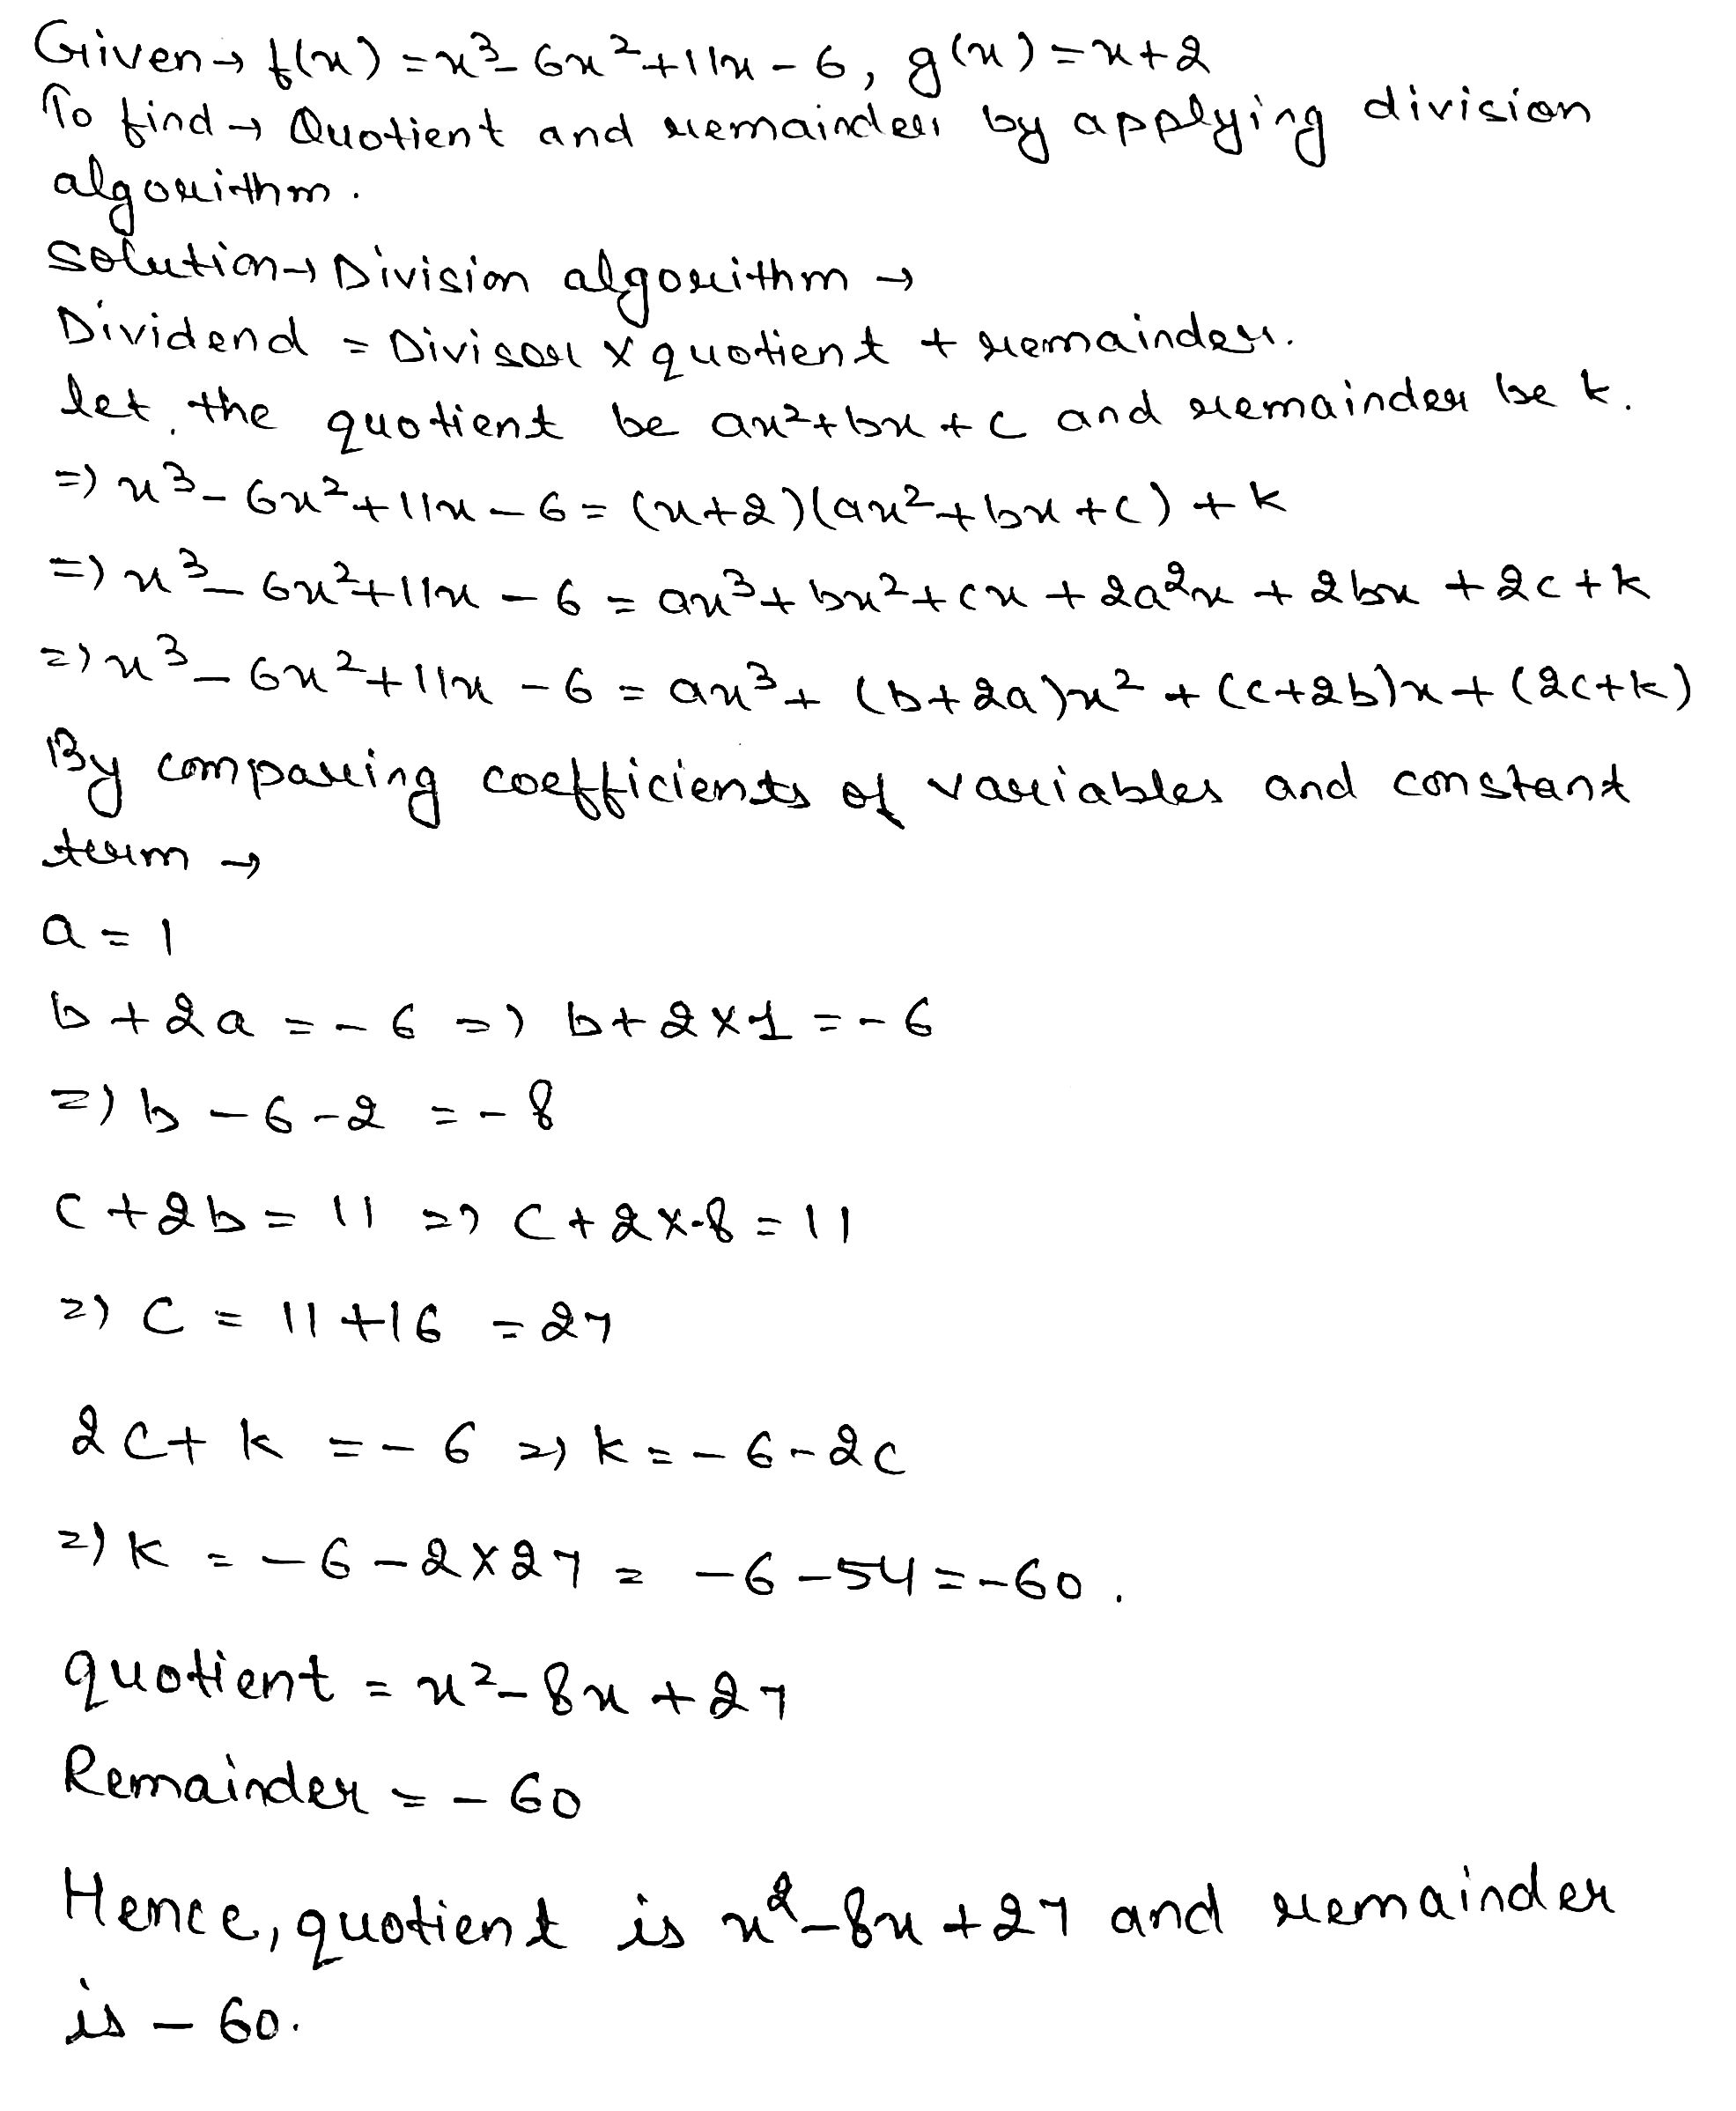 Given → f(x) = x³ - 6x² + 11x - 6, g(x) = x + 2
To find → Quotient and remainder by applying division
algorithm.
Solution → Division algorithm →
Dividend = Divisor × quotient + remainder.
let, the quotient be ax² + bx + c and remainder be k.
=) x³ - 6x² + 11x - 6 = (x+2)(ax² + bx + c) + k
=) x³ - 6x² + 11x - 6 = ax³ + bx² + cx + 2a²x + 2bx + 2c + k
=) x³ - 6x² + 11x - 6 = ax³ + (b+2a)x² + (c+2b)x + (2c+k)
By comparing coefficients of variables and constant
term →
a = 1
b + 2a = -6 =) b + 2×1 = -6
=) b - 6 - 2 = -8
c + 2b = 11 =) c + 2×-8 = 11
=) c = 11 + 16 = 27
2c + k = -6 =) k = -6 - 2c
=) k = -6 - 2×27 = -6 - 54 = -60.
quotient = x² - 8x + 27
Remainder = -60
Hence, quotient is x² - 8x + 27 and remainder
is - 60.